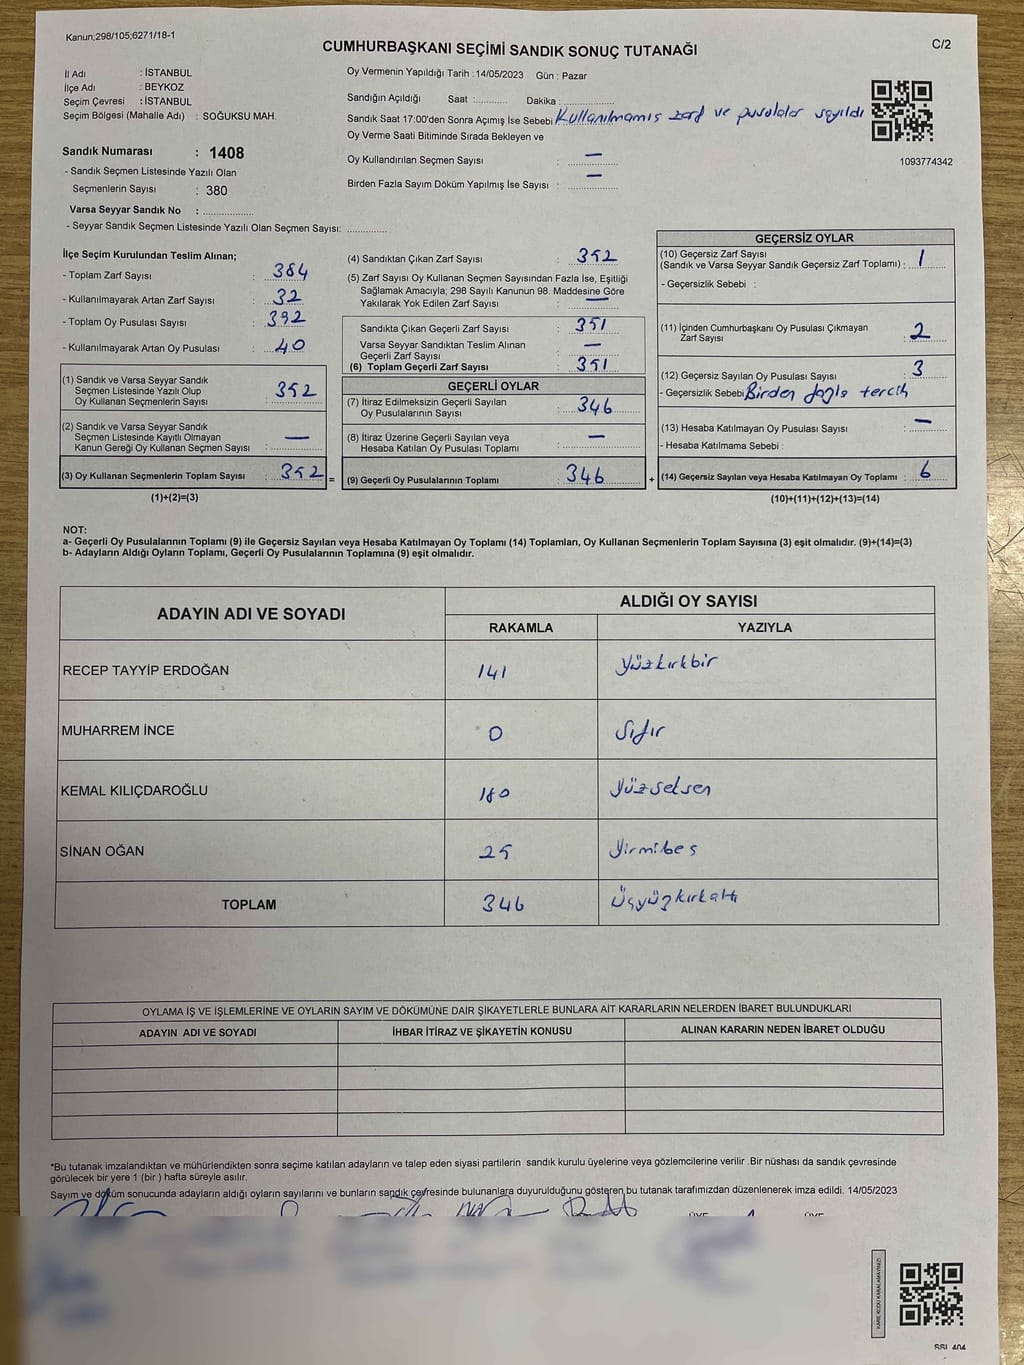 Kanun;298/105;6271/18-1
CUMHURBAŞKANI SEÇİMİ SANDIK SONUÇ TUTANAĞI
C/2
İl Adı : İSTANBUL
İlçe Adı : BEYKOZ
Seçim Çevresi : İSTANBUL
Seçim Bölgesi (Mahalle Adı) : SOĞUKSU MAH.
Sandık Numarası : 1408
- Sandık Seçmen Listesinde Yazılı Olan
Seçmenlerin Sayısı : 380
Varsa Seyyar Sandık No : ..................
- Seyyar Sandık Seçmen Listesinde Yazılı Olan Seçmen Sayısı: ..............
Oy Vermenin Yapıldığı Tarih : 14/05/2023 Gün : Pazar
Sandığın Açıldığı Saat :........... Dakika :...................
Sandık Saat 17:00'den Sonra Açımış İse Sebebi Kullanılmamıs zarf ve pusulalar sayıldı
Oy Verme Saati Bitiminde Sırada Bekleyen ve
Oy Kullandırılan Seçmen Sayısı : —
Birden Fazla Sayım Döküm Yapılmış İse Sayısı : —
1093774342
İlçe Seçim Kurulundan Teslim Alınan;
- Toplam Zarf Sayısı : 384
- Kullanılmayarak Artan Zarf Sayısı : 32
- Toplam Oy Pusulası Sayısı : 392
- Kullanılmayarak Artan Oy Pusulası : 40
(1) Sandık ve Varsa Seyyar Sandık
Seçmen Listesinde Yazılı Olup
Oy Kullanan Seçmenlerin Sayısı : 352
(2) Sandık ve Varsa Seyyar Sandık
Seçmen Listesinde Kayıtlı Olmayan
Kanun Gereği Oy Kullanan Seçmen Sayısı : —
(3) Oy Kullanan Seçmenlerin Toplam Sayısı : 352 =
(1)+(2)=(3)
(4) Sandıktan Çıkan Zarf Sayısı : 352
(5) Zarf Sayısı Oy Kullanan Seçmen Sayısından Fazla İse, Eşitliği
Sağlamak Amacıyla; 298 Sayılı Kanunun 98. Maddesine Göre
Yakılarak Yok Edilen Zarf Sayısı : —
Sandıkta Çıkan Geçerli Zarf Sayısı : 351
Varsa Seyyar Sandıktan Teslim Alınan
Geçerli Zarf Sayısı : —
(6) Toplam Geçerli Zarf Sayısı : 351
GEÇERLİ OYLAR
(7) İtiraz Edilmeksizin Geçerli Sayılan
Oy Pusulalarının Sayısı : 346
(8) İtiraz Üzerine Geçerli Sayılan veya
Hesaba Katılan Oy Pusulası Toplamı : —
(9) Geçerli Oy Pusulalarının Toplamı : 346 +
GEÇERSİZ OYLAR
(10) Geçersiz Zarf Sayısı
(Sandık ve Varsa Seyyar Sandık Geçersiz Zarf Toplamı) : 1
- Geçersizlik Sebebi :
(11) İçinden Cumhurbaşkanı Oy Pusulası Çıkmayan
Zarf Sayısı : 2
(12) Geçersiz Sayılan Oy Pusulası Sayısı : 3
- Geçersizlik Sebebi Birden fazla tercih
(13) Hesaba Katılmayan Oy Pusulası Sayısı : —
- Hesaba Katılmama Sebebi :
(14) Geçersiz Sayılan veya Hesaba Katılmayan Oy Toplamı : 6
(10)+(11)+(12)+(13)=(14)
NOT:
a- Geçerli Oy Pusulalarının Toplamı (9) ile Geçersiz Sayılan veya Hesaba Katılmayan Oy Toplamı (14) Toplamları, Oy Kullanan Seçmenlerin Toplam Sayısına (3) eşit olmalıdır. (9)+(14)=(3)
b- Adayların Aldığı Oyların Toplamı, Geçerli Oy Pusulalarının Toplamına (9) eşit olmalıdır.
ADAYIN ADI VE SOYADI ALDIĞI OY SAYISI
RAKAMLA YAZIYLA
RECEP TAYYİP ERDOĞAN 141 Yüzkırkbir
MUHARREM İNCE 0 Sıfır
KEMAL KILIÇDAROĞLU 180 Yüzseksen
SİNAN OĞAN 25 Yirmibes
TOPLAM 346 Üçyüzkırkaltı
OYLAMA İŞ VE İŞLEMLERİNE VE OYLARIN SAYIM VE DÖKÜMÜNE DAİR ŞİKAYETLERLE BUNLARA AİT KARARLARIN NELERDEN İBARET BULUNDUKLARI
ADAYIN ADI VE SOYADI İHBAR İTİRAZ VE ŞİKAYETİN KONUSU ALINAN KARARIN NEDEN İBARET OLDUĞU
*Bu tutanak imzalandıktan ve mühürlendikten sonra seçime katılan adayların ve talep eden siyasi partilerin sandık kurulu üyelerine veya gözlemcilerine verilir .Bir nüshası da sandık çevresinde
görülecek bir yere 1 (bir ) hafta süreyle asılır.
Sayım ve döküm sonucunda adayların aldığı oyların sayılarını ve bunların sandık çevresinde bulunanlara duyurulduğunu gösteren bu tutanak tarafımızdan düzenlenerek imza edildi. 14/05/2023
ÜYE ÜYE
KARE KODU KARALAMAYINIZ!